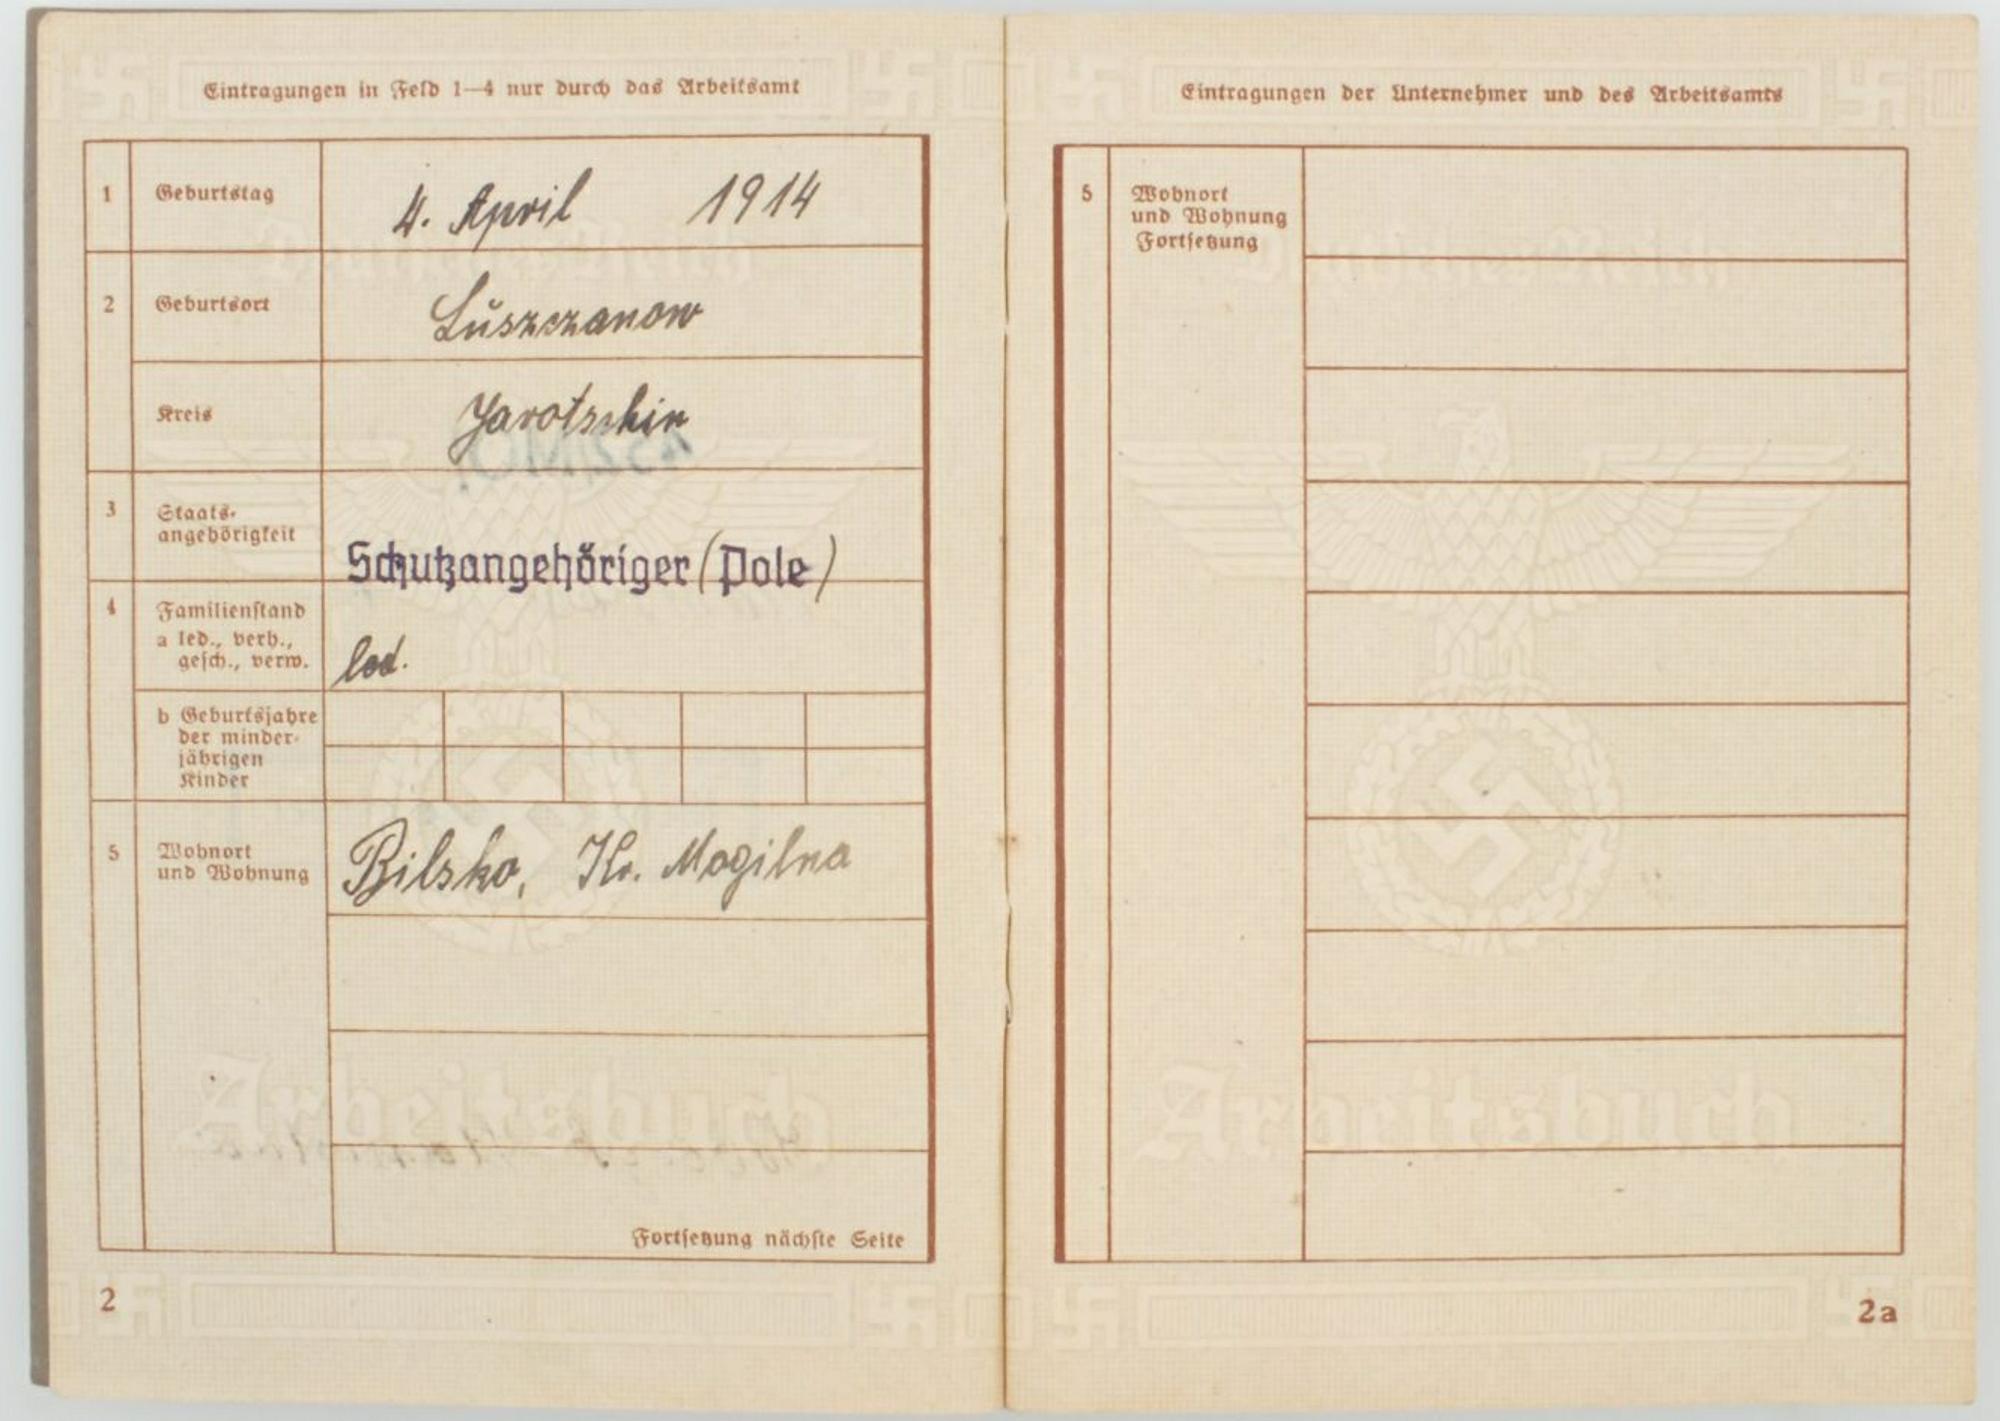 Eintragungen in Feld 1—4 nur durch das Arbeitsamt
1 Geburtstag 4. April 1914
2 Geburtsort Lŭszczanow
Kreis Jarotschin
3 Staats-
angehörigkeit
Schutzangehöriger (Pole)
4 Familienstand
a led., verh.,
gesch., verw.
led.
b Geburtsjahre
der minder-
jährigen
Kinder
5 Wohnort
und Wohnung
Bilsko, Kr. Mogilna
Fortsetzung nächste Seite
2
Deutsches Reich
Arbeitsbuch
Eintragungen der Unternehmer und des Arbeitsamts
5 Wohnort
und Wohnung
Fortsetzung
Deutsches Reich
Arbeitsbuch
2a